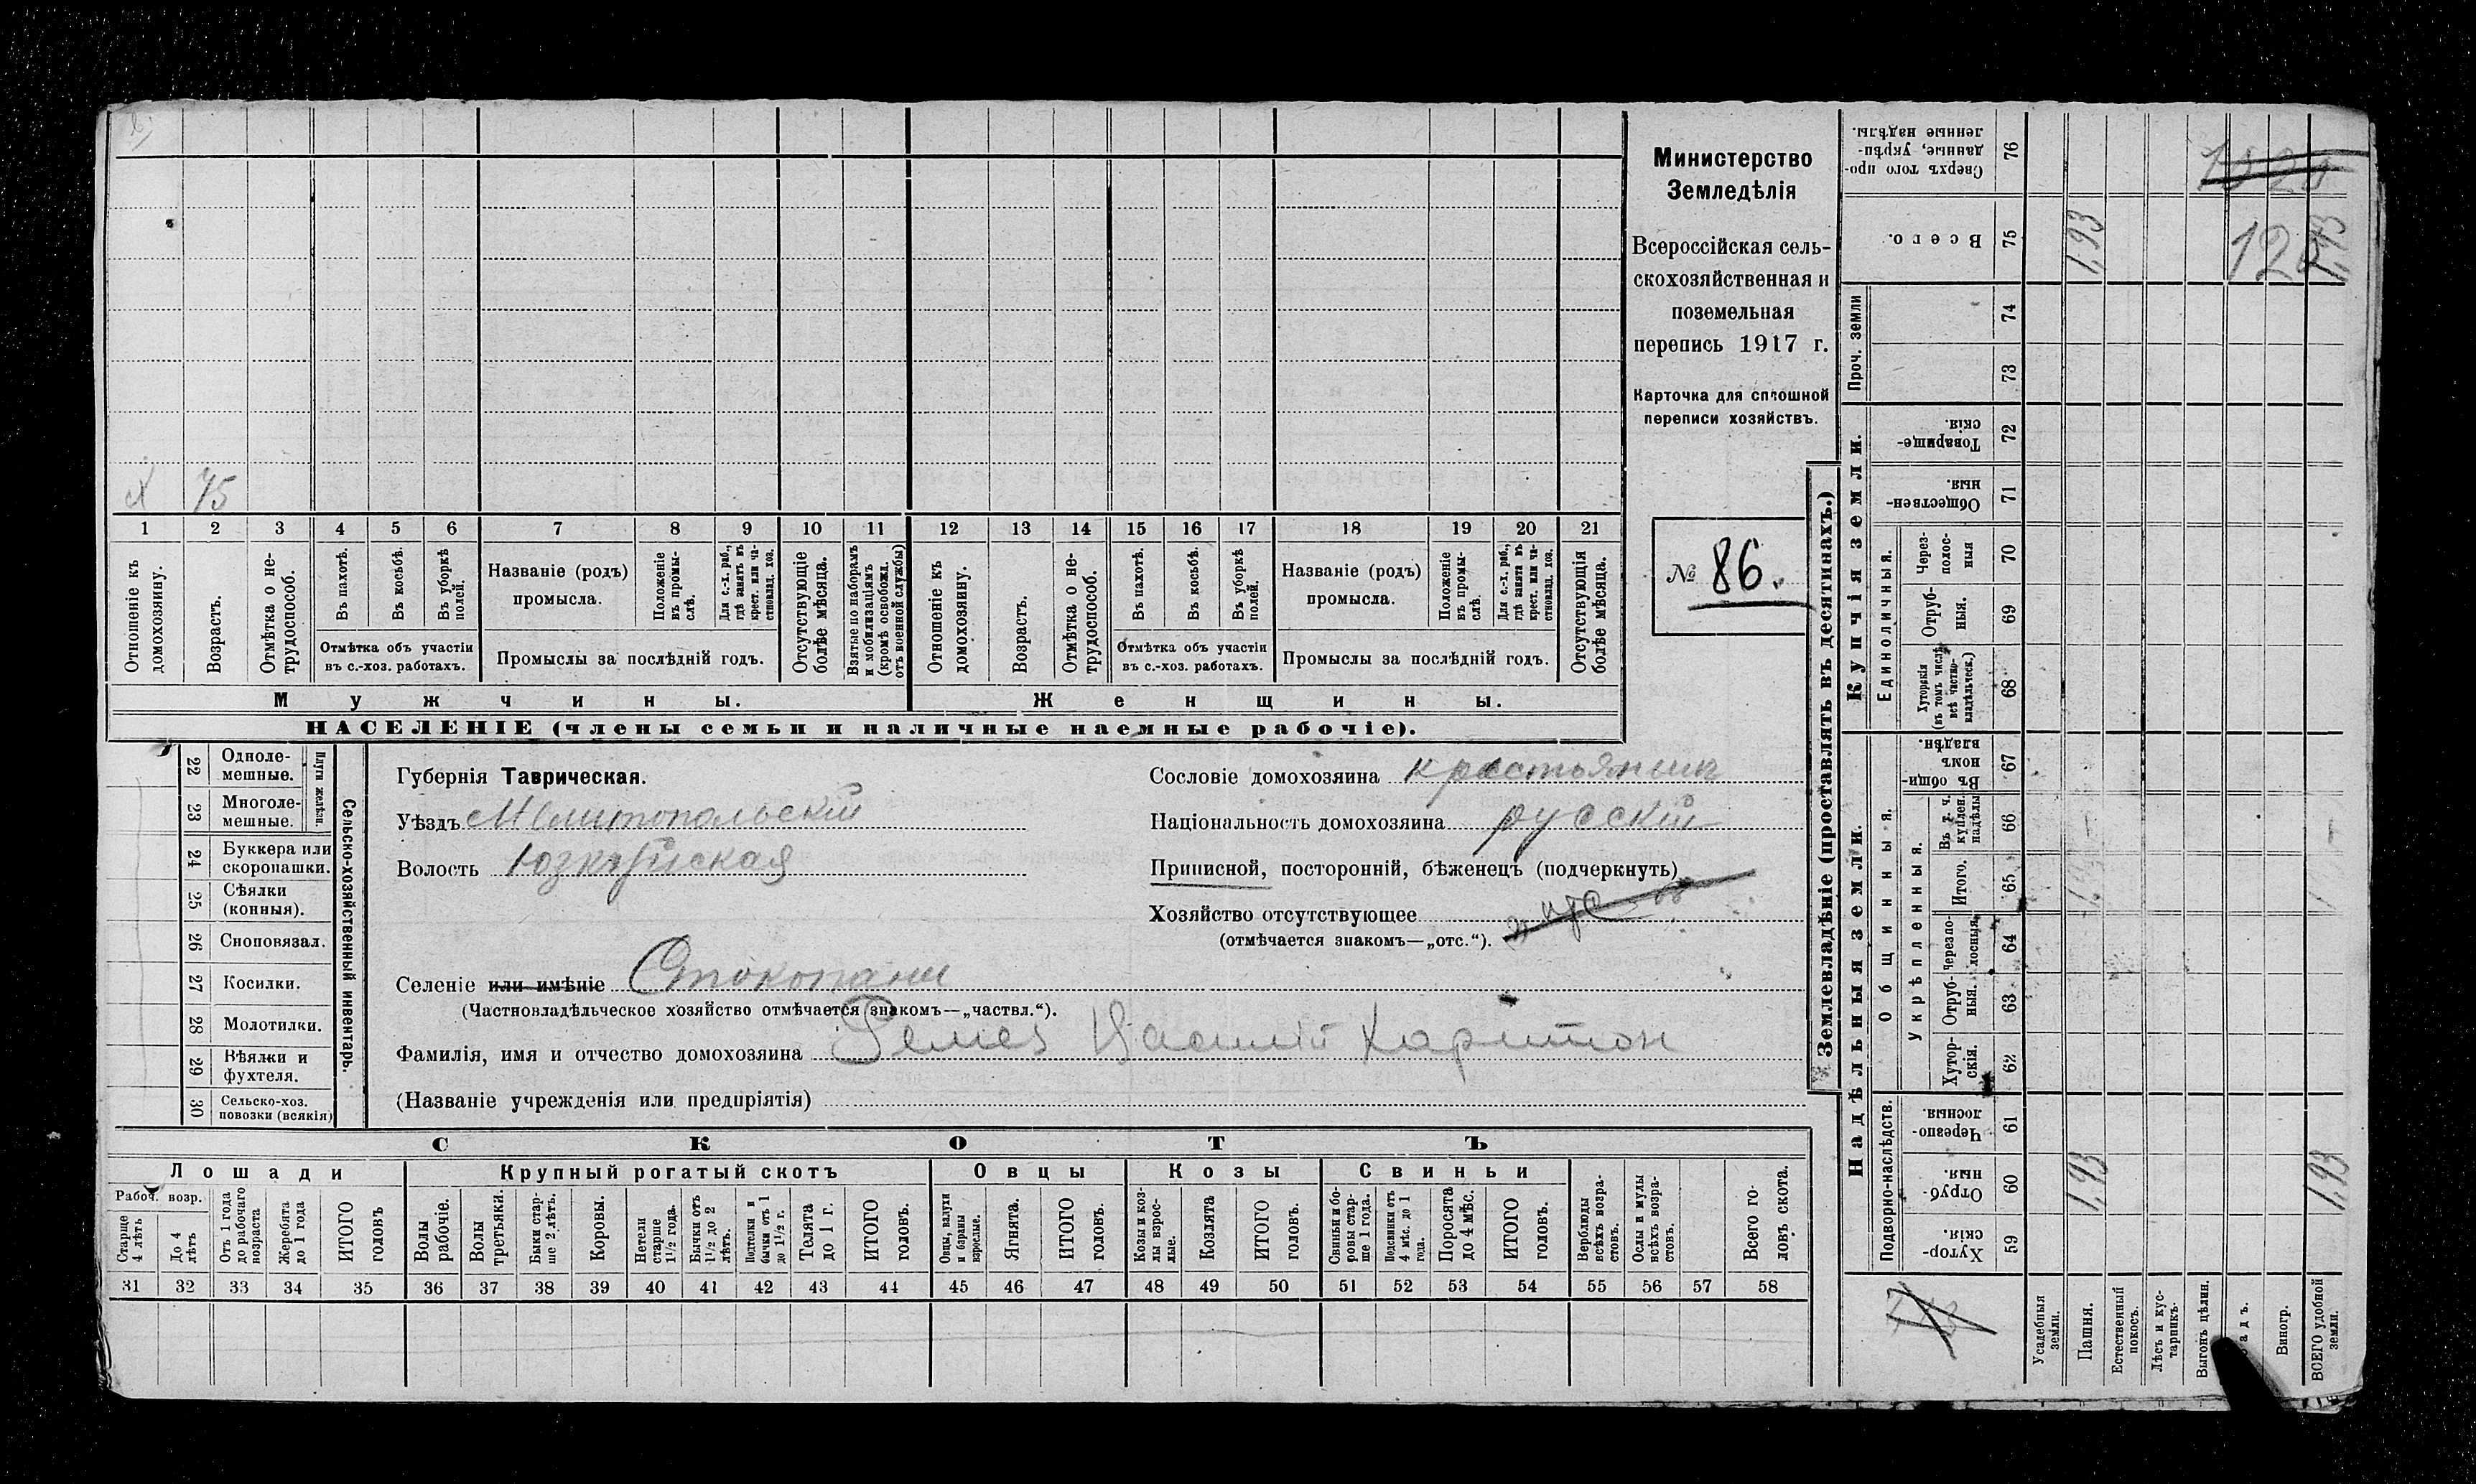 х 75
1 2 3 4 5 6 7 8 9 10 11 12 13 14 15 16 17 18 19 20 21
Отношеніе къ домохозяину.
Возрастъ.
Отмѣтка о не-
трудоспособ.
Въ пахотѣ.
Въ косьбѣ.
Въ уборкѣ полей.
Отмѣтка объ участіи
въ с.-хоз. работахъ.
Названіе (родъ)
промысла.
Положеніе въ промы-
слѣ.
Для с.-х. раб., гдѣ занятъ въ крест. или ча-
стновлад. хоз.
Промыслы за послѣдній годъ.
Отсутствующіе болѣе мѣсяца.
Взятые по наборамъ и мобилизаціямъ (кромѣ освобожд. отъ военной службы)
Отношеніе къ домохозяину.
Возрастъ.
Отмѣтка о не-
трудоспособ.
Въ пахотѣ.
Въ косьбѣ.
Въ уборкѣ полей.
Отмѣтка объ участіи
въ с.-хоз. работахъ.
Названіе (родъ)
промысла.
Положеніе въ промы-
слѣ.
Для с.-х. раб., гдѣ занята въ крест. или ча-
стновлад. хоз.
Промыслы за послѣдній годъ.
Отсутствующія болѣе мѣсяца.
Мужчины.
Женщины.
НАСЕЛЕНІЕ (члены семьи и наличные наемные рабочіе).
Министерство
Земледѣлія
Всероссійская сель-
скохозяйственная и
поземельная
перепись 1917 г.
Карточка для сплошной
переписи хозяйствъ.
№ 86.
22 Одноле-
мешные.
23 Многоле-
мешные.
Плуги желѣзн.
24 Буккера или
скоропашки.
25 Сѣялки
(конныя).
26 Сноповязал.
27 Косилки.
28 Молотилки.
29 Вѣялки и
фухтеля.
30 Сельско-хоз.
повозки (всякія)
Сельско-хозяйственный инвентарь.
Губернія Таврическая.
Уѣздъ Мелитопольскій
Волость Юзкуйская
Селеніе или имѣніе Стокопани
(Частновладѣльческое хозяйство отмѣчается знакомъ—„частвл.“).
Фамилія, имя и отчество домохозяина Ремез Василій Харитон
(Названіе учрежденія или предпріятія)
Сословіе домохозяина крестьянин
Національность домохозяина русскій
Приписной, посторонній, бѣженецъ (подчеркнуть)
Хозяйство отсутствующее
(отмѣчается знакомъ—„отс.“).
СКОТЪ
Лошади
Крупный рогатый скотъ
Овцы
Козы
Свиньи
Рабоч. возр.
Старше 4 лѣтъ
До 4 лѣтъ
Отъ 1 года до рабочаго возраста
Жеребята до 1 года
ИТОГО головъ
Волы рабочіе.
Волы третьяки.
Быки стар-
ше 2 лѣтъ.
Коровы.
Нетели старше 1½ года.
Бычки отъ 1½ до 2 лѣтъ.
Подтелки и бычки отъ 1 до 1½ г.
Телята до 1 г.
ИТОГО головъ.
Овцы, валухи и бараны взрослые.
Ягнята.
ИТОГО головъ.
Козы и коз-
лы взрос-
лые.
Козлята
ИТОГО головъ.
Свиньи и бо-
ровы стар-
ше 1 года.
Подсвинки отъ 4 мѣс. до 1 года.
Поросята до 4 мѣс.
ИТОГО головъ.
Верблюды всѣхъ возра-
стовъ.
Ослы и мулы всѣхъ возра-
стовъ.
Всего го-
ловъ скота.
31 32 33 34 35 36 37 38 39 40 41 42 43 44 45 46 47 48 49 50 51 52 53 54 55 56 57 58
Землевладѣніе (проставлять въ десятинахъ.)
Сверхъ того про-
данные, укрѣп-
ленные надѣлы. 76
Всего. 75 1,93 1,93
Проч. земли 74
73
Купчія земли.
Товарище-
скія. 72
Обществен-
ныя. 71
Единоличныя.
Через-
полос-
ныя 70
Отруб-
ныя. 69
Хуторскія (въ томъ числѣ всѣ частно-
владѣльческ.) 68
Надѣльныя земли.
Общинныя.
Въ общи-
номъ
владѣн. 67
Укрѣпленныя.
Въ т. ч. куплен. надѣлы 66
Итого. 65
Черезпо-
лосныя. 64
Отруб-
ныя. 63
Хутор-
скія. 62
Подворно-наслѣдств.
Черезпо-
лосныя. 61
Отруб-
ныя. 60 1,93 1,93
Хутор-
скія. 59
Усадебныя земли.
Пашня.
Естественный покосъ.
Лѣсъ и кус-
тарникъ.
Выгонъ цѣлин.
Виногр.
ВСЕГО удобной земли.